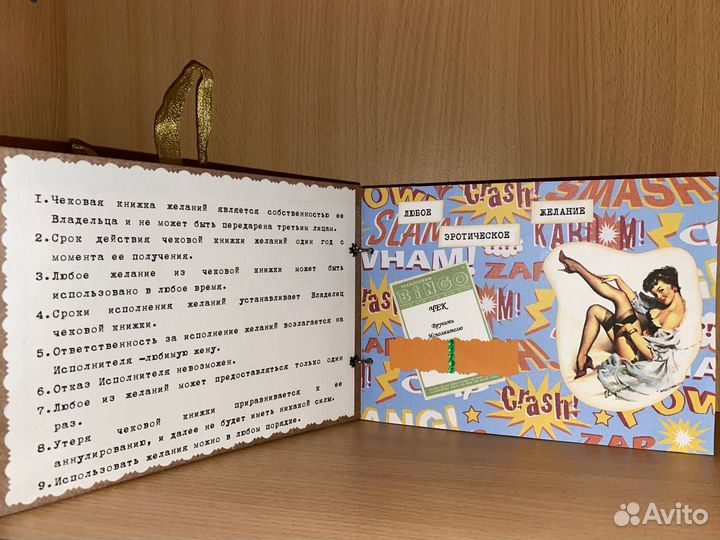 I.Чековая книжка желаний является собственностью ее
Владельца и не может быть передарена третьим лицам.
2.Срок действия чековой книжки желаний один год с
момента ее получения.
3.Любое желание из чековой книжки может быть
использовано в любое время.
4.Сроки исполнения желаний устанавливает Владелец
чековой книжки.
5.Ответственность за исполнение желаний возлагается на
Исполнителя –любимую жену.
6.Отказ Исполнителя невозможен.
7.Любое из желаний может предоставляться только один
раз.
8.Утеря чековой книжки приравнивается к ее
аннулированию, и далее не будет иметь никакой силы.
9.Использовать желания можно в любом порядке.
Crash!
SMASH!
ЛЮБОЕ
ЖЕЛАНИЕ
SLAM!
ЭРОТИЧЕСКОЕ
WHAM!
ZAP
BINGO
ЧЕК
Вручить
Исполнителю
Crash!
ZAP
POW
Avito